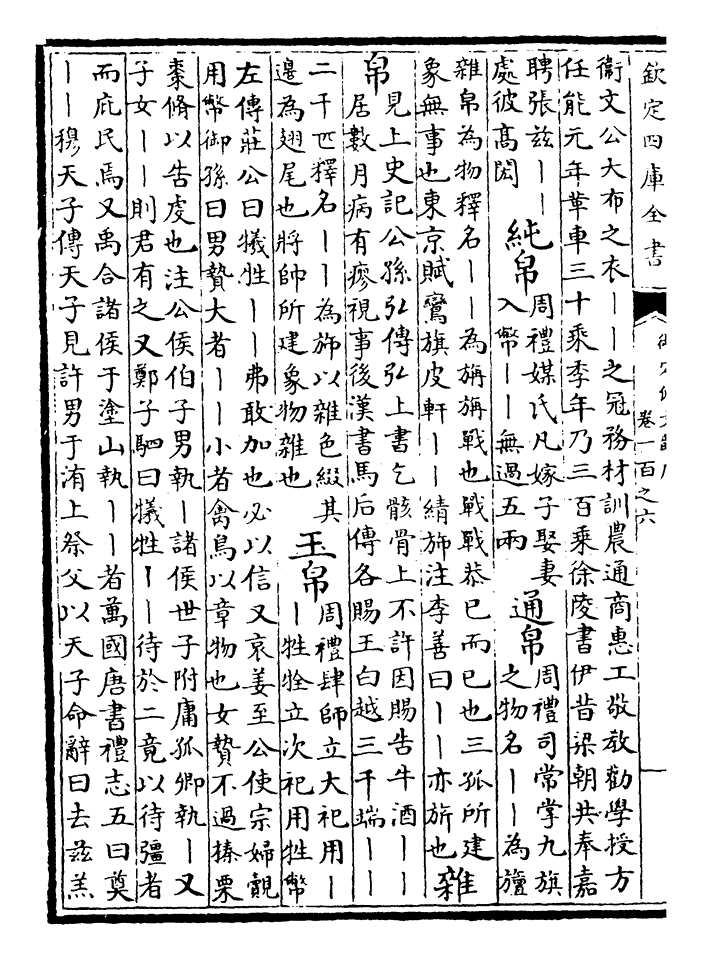 欽定四庫全書
卷一百之六
衞文公大布之衣丨丨之冠務材訓農通商惠工敬敎勸學授方
任能元年革車三十乘季年乃三百乘徐陵書伊昔梁朝共奉嘉
聘張兹丨丨
處彼高閎
純帛
周禮媒氏凡嫁子娶妻
入幣丨丨無過五兩
通帛
周禮司常掌九旗
之物名丨丨為旜
雜帛為物釋名丨丨為旃旃戰也戰戰恭已而已也三孤所建
象無事也東京賦鸞旗皮軒丨丨綪斾注李善曰丨丨亦旃也
雜
帛
見上史記公孫弘傳弘上書乞骸骨上不許因賜告牛酒丨丨
居數月病有瘳視事後漢書馬后傳各賜王白越三千端丨丨
二千匹釋名丨丨為斾以雜色綴其
邊為翅尾也將帥所建象物雜也
玉帛
周禮肆師立大祀用丨
丨牲牷立次祀用牲幣
左傳莊公曰犧牲丨丨弗敢加也必以信又哀姜至公使宗婦覿
用幣御孫曰男贄大者丨丨小者禽鳥以章物也女贄不過榛栗
棗脩以告虔也注公侯伯子男執丨諸侯世子附庸孤卿執丨又
子女丨丨則君有之又鄭子駟曰犧牲丨丨待於二竟以待彊者
而庇民焉又禹合諸侯于塗山執丨丨者萬國唐書禮志五曰奠
丨丨穆天子傳天子見許男于洧上祭父以天子命辭曰去兹羔